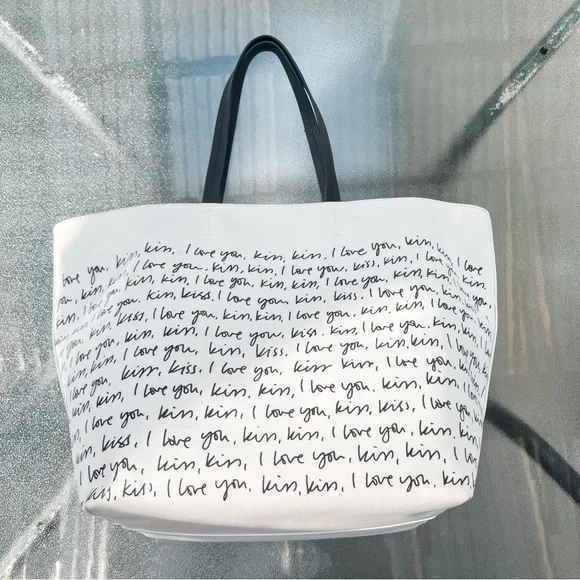 love you, kiss, kiss, I love you. kiss, kiss. I love you, kiss, kiss, I love
you, kiss, kiss, I love you. kiss, kiss, I love you, kiss, kiss, I love you, kiss.
kiss, kiss, I love you, kiss, kiss, I love you, kiss, kiss, you,
you, kiss, kiss. I love you, kiss, kiss. I love you, kiss
kiss, I love you, kiss, kiss, I love you, kiss, kiss, I love
I love you, kiss, kiss, I love you, kiss. kiss, I love you. kiss, kiss, I
love you, kiss, kiss, I love you, kiss, kiss. I love you, kiss, kiss, I love you
I love you, kiss, kiss. I love you, kiss kiss, I love you, kiss
kiss, kiss, I love you, kiss, kiss, I love you, kiss, kiss, I
I love you, kiss, kiss, I love you, kiss, kiss, I love you,
kiss, kiss, I love you, kiss, kiss, I love you, kiss, kiss,
I love you, kiss, kiss, I love you, kiss, kiss, I love
kiss, kiss, I love you, kiss, kiss, I love you, kiss